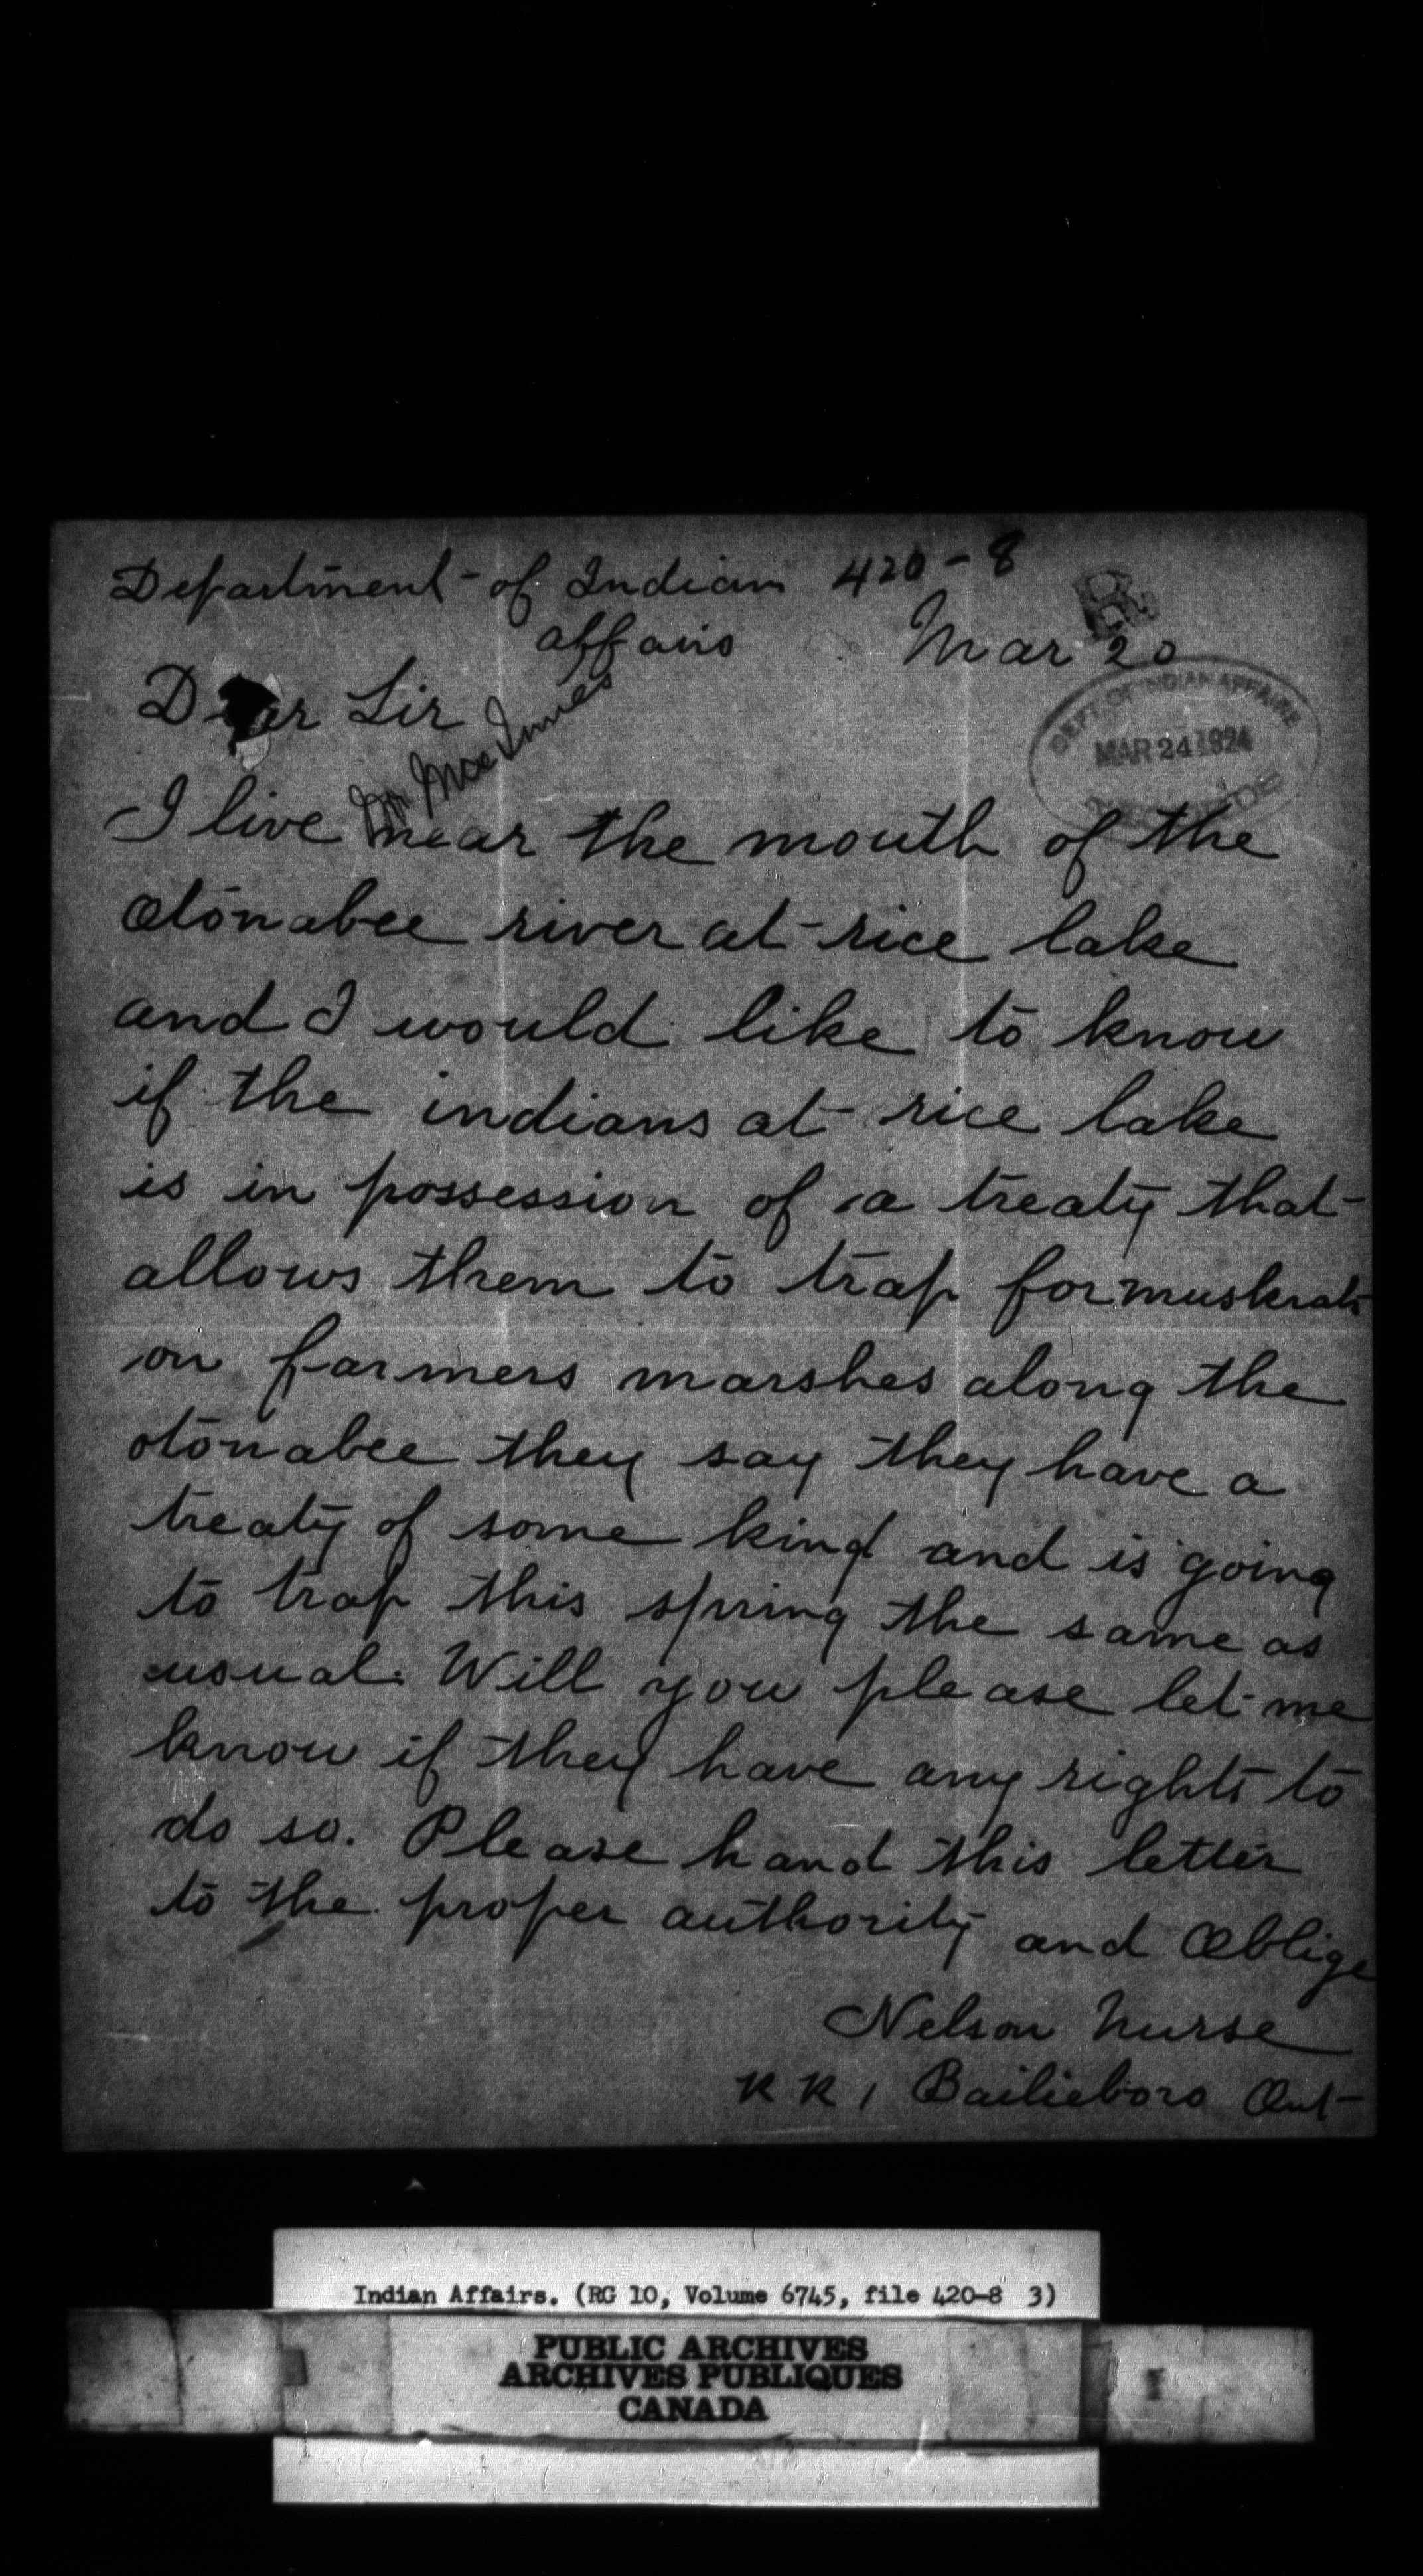 Department of Indian 420-8
affairs Mar 20
R
Dear Sir
Mr MacInnes
DEPT. OF INDIAN AFFAIRS
MAR 24 1924
I live near the mouth of the
Otonabee river at rice lake
and I would like to know
if the indians at rice lake
is in possession of a treaty that
allows them to trap for muskrats
on farmers marshes along the
otonabee they say they have a
treaty of some kind and is going
to trap this spring the same as
usual. Will you please let me
know if they have any rights to
do so. Please hand this letter
to the proper authority and Oblige
Nelson Nurse
RR 1 Bailieboro Ont
Indian Affairs. (RG 10, Volume 6745, file 420-8 3)
PUBLIC ARCHIVES
ARCHIVES PUBLIQUES
CANADA